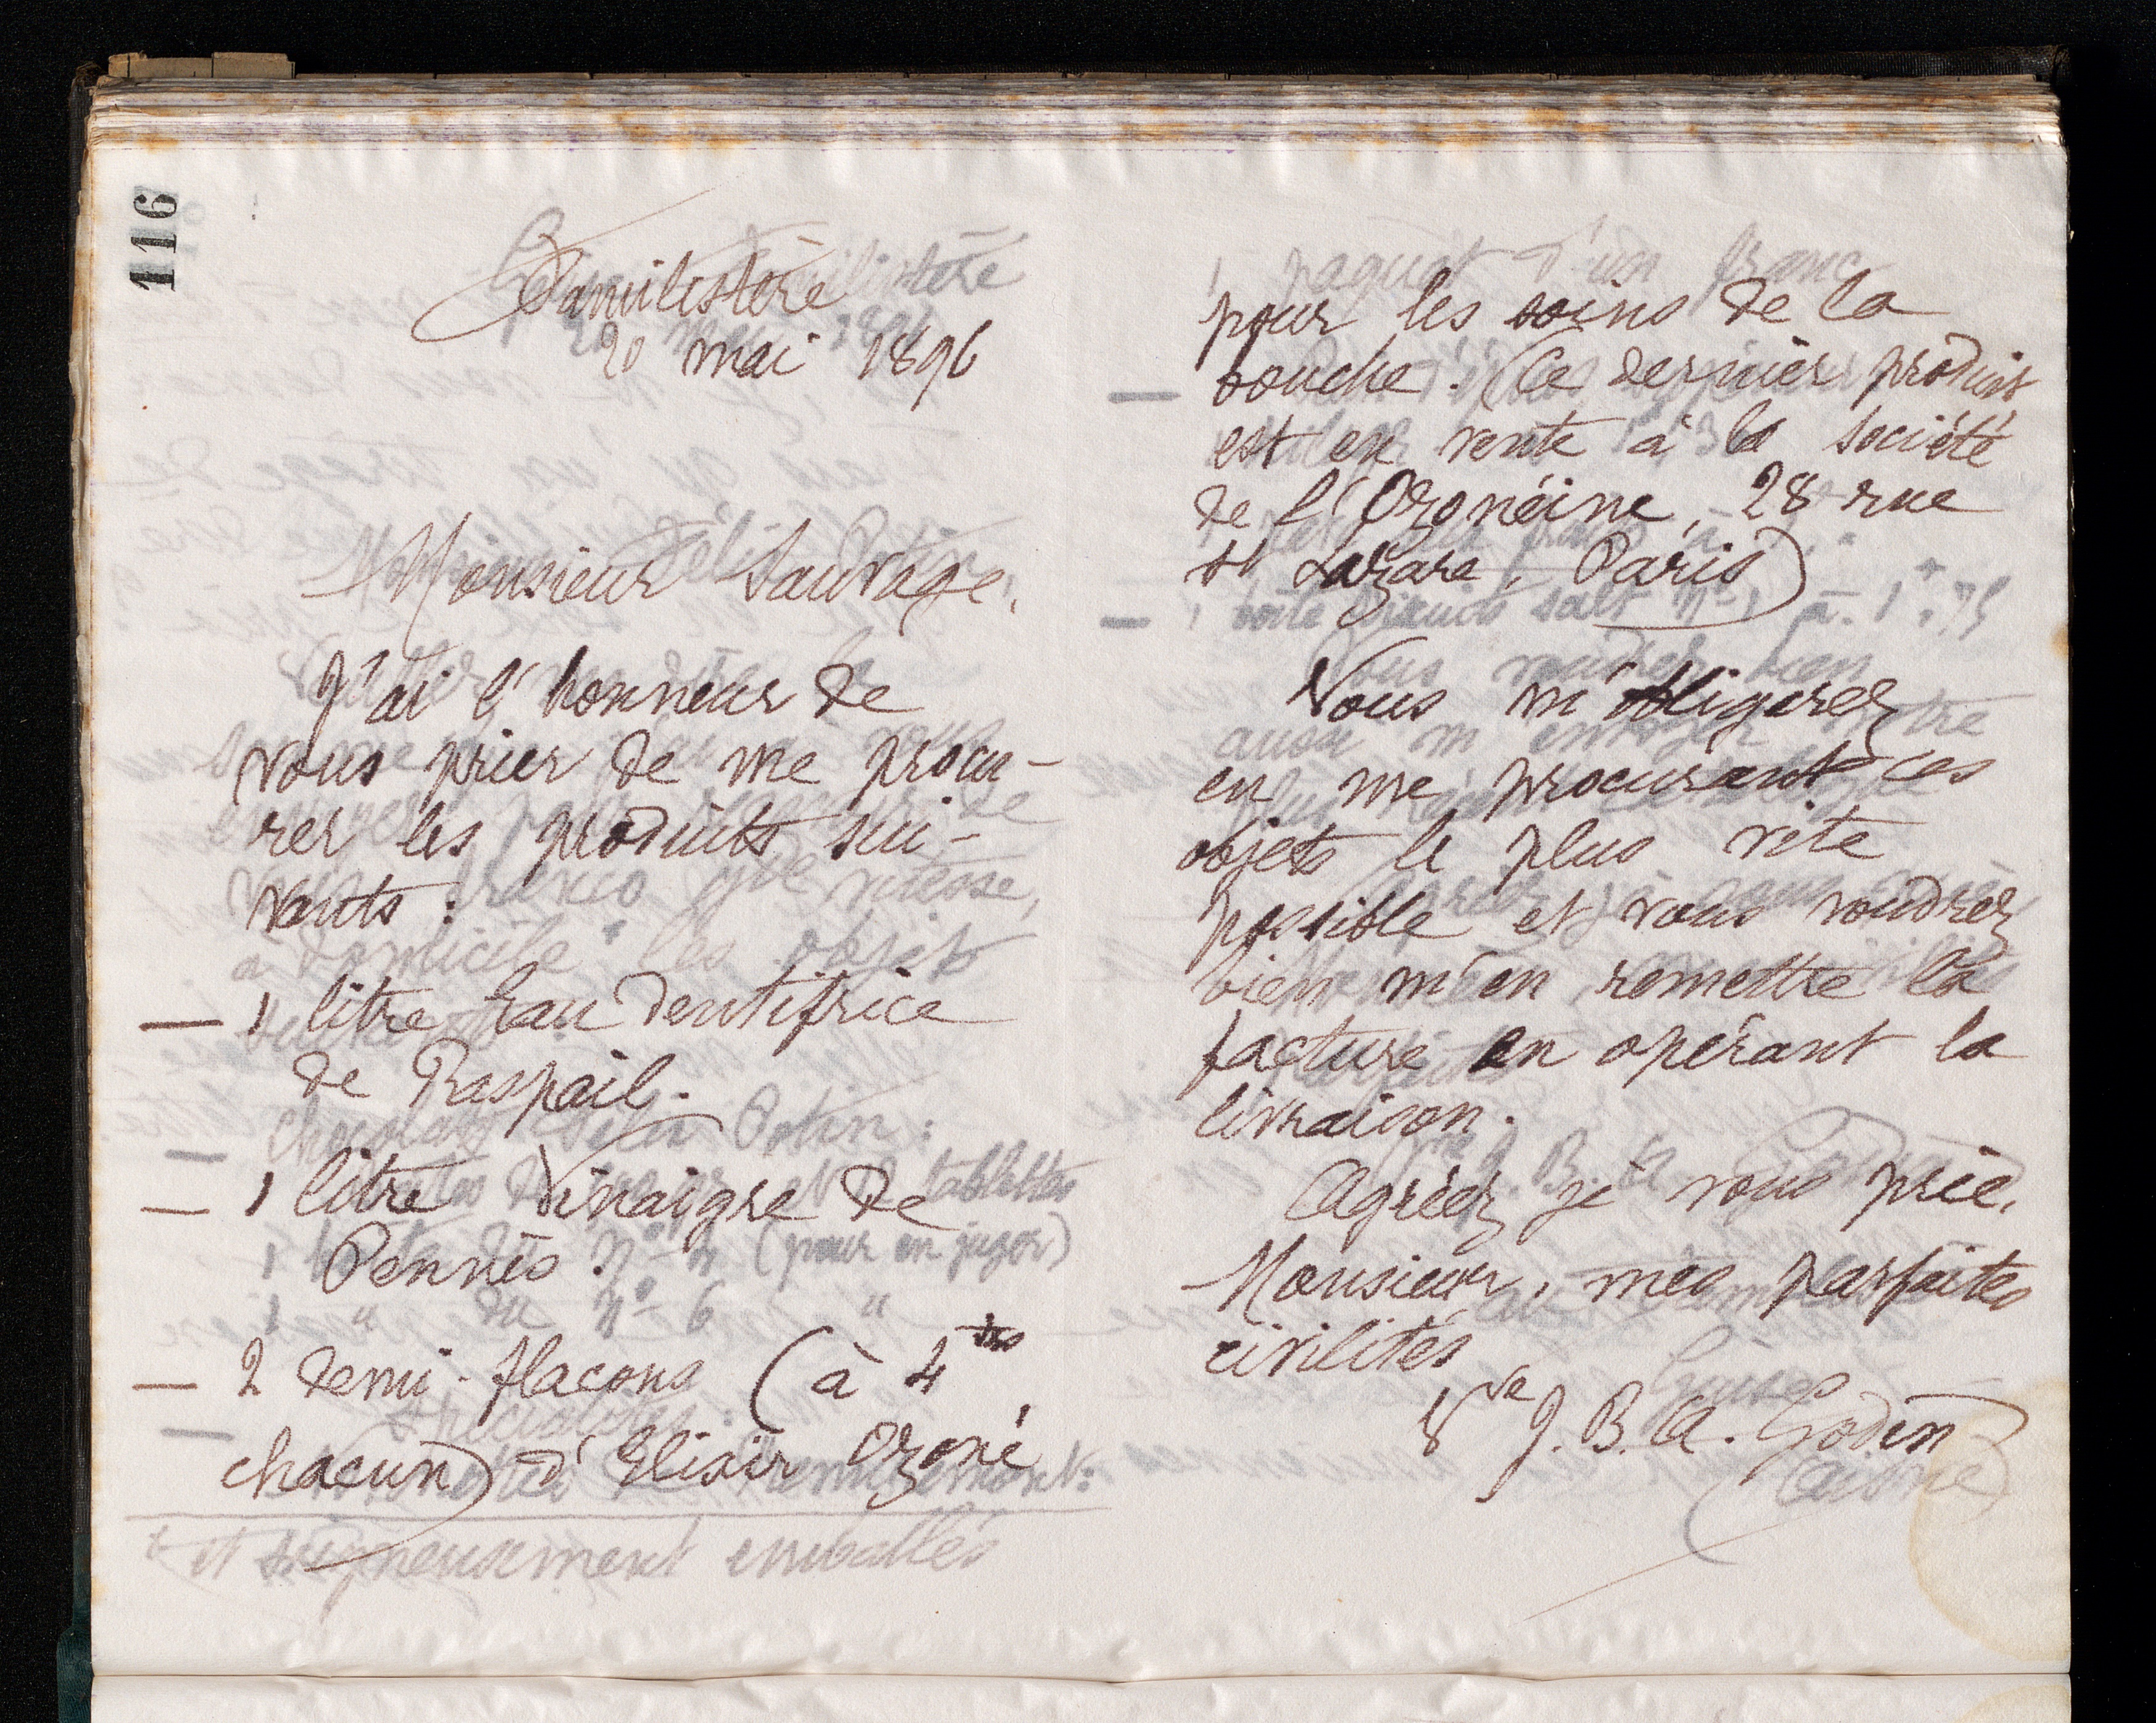 116
Familistère
20 mai 1896
Monsieur Sauvage,
J'ai l'honneur de
vous prier de me procu-
rer les produits sui-
vants :
— 1 litre Eau dentifrice
de Raspail.
— 1 litre Vinaigre de
Pennès.
— 2 demi-flacons (à 4 frs
chacun) d'Elixir Ozoné
pour les soins de la
bouche. (Ce dernier produit
est en vente à la société
de l'Ozonéine, 28 rue
St Lazare, Paris)
Vous m'obligerez
en me procurant ces
objets le plus vite
possible et vous voudrez
bien m'en remettre la
facture en opérant la
livraison.
Agréez, je vous prie,
Monsieur, mes parfaites
civilités
Vve J. B. A. Godin